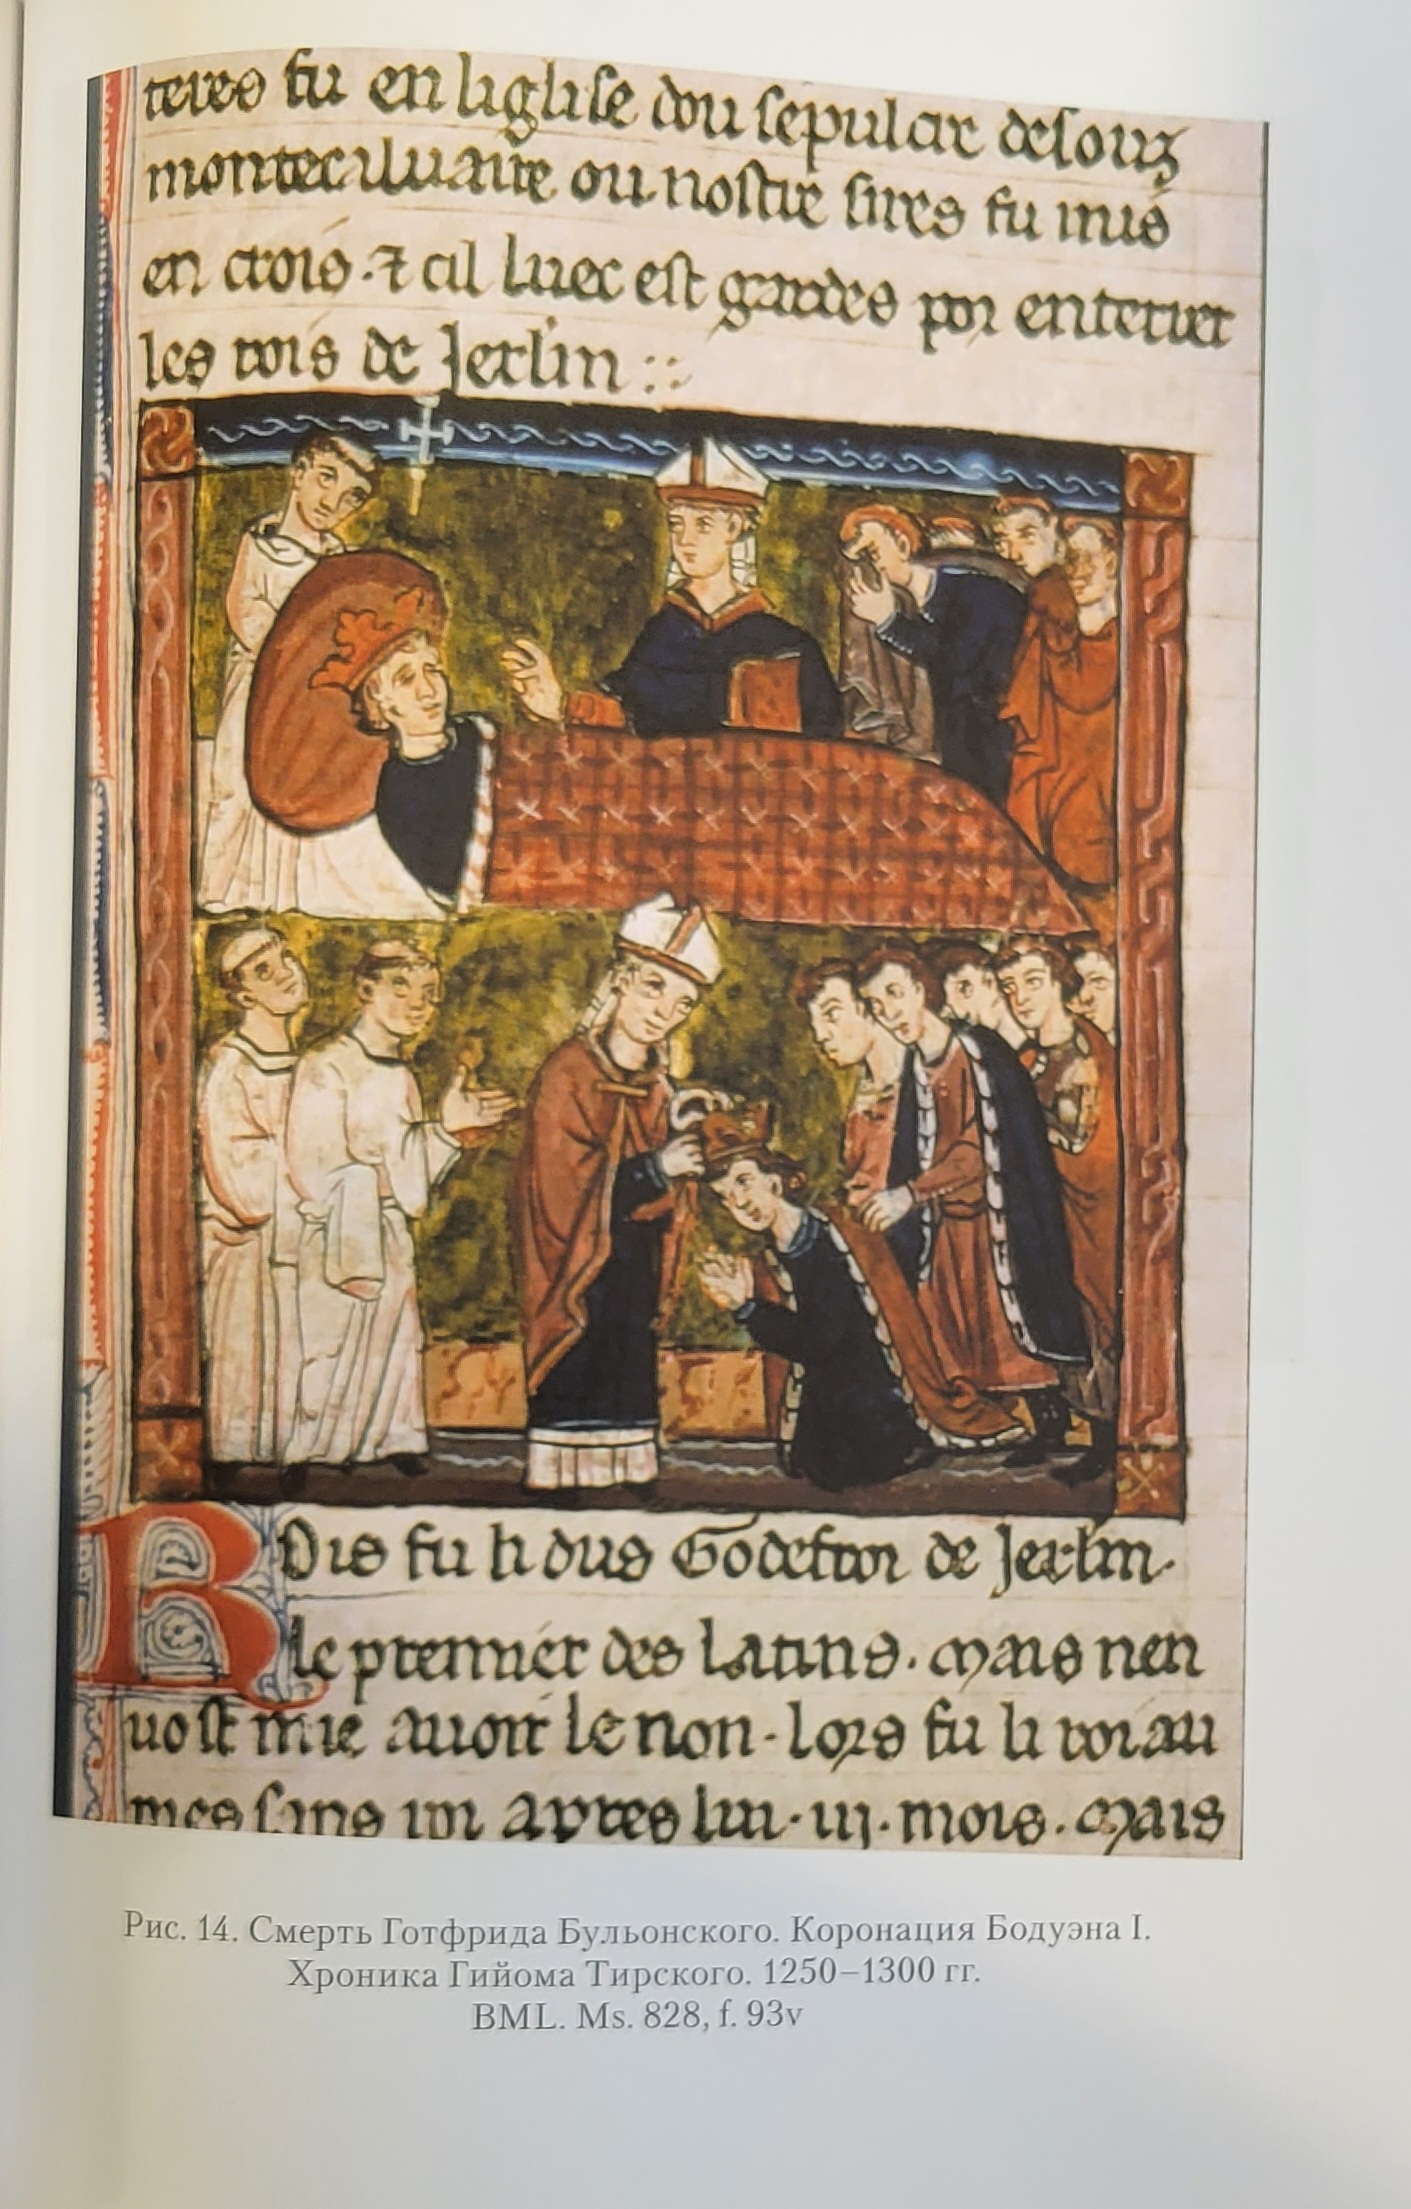 teres fu en liglise dou sepulcre desouz
montecaluaire ou nostre sires fu mis
en crois. ⁊ cil luec est gardes por enterrer
les rois de Jerlm
Rois fu li dus Godefroi de Jerlm.
le premier des latins. mais nen
uost mie auoir le non. lors fu li roiau
mes sans roi apres lui. iij. mois. mais
Рис. 14. Смерть Готфрида Бульонского. Коронация Бодуэна I.
Хроника Гийома Тирского. 1250–1300 гг.
BML. Ms. 828, f. 93v